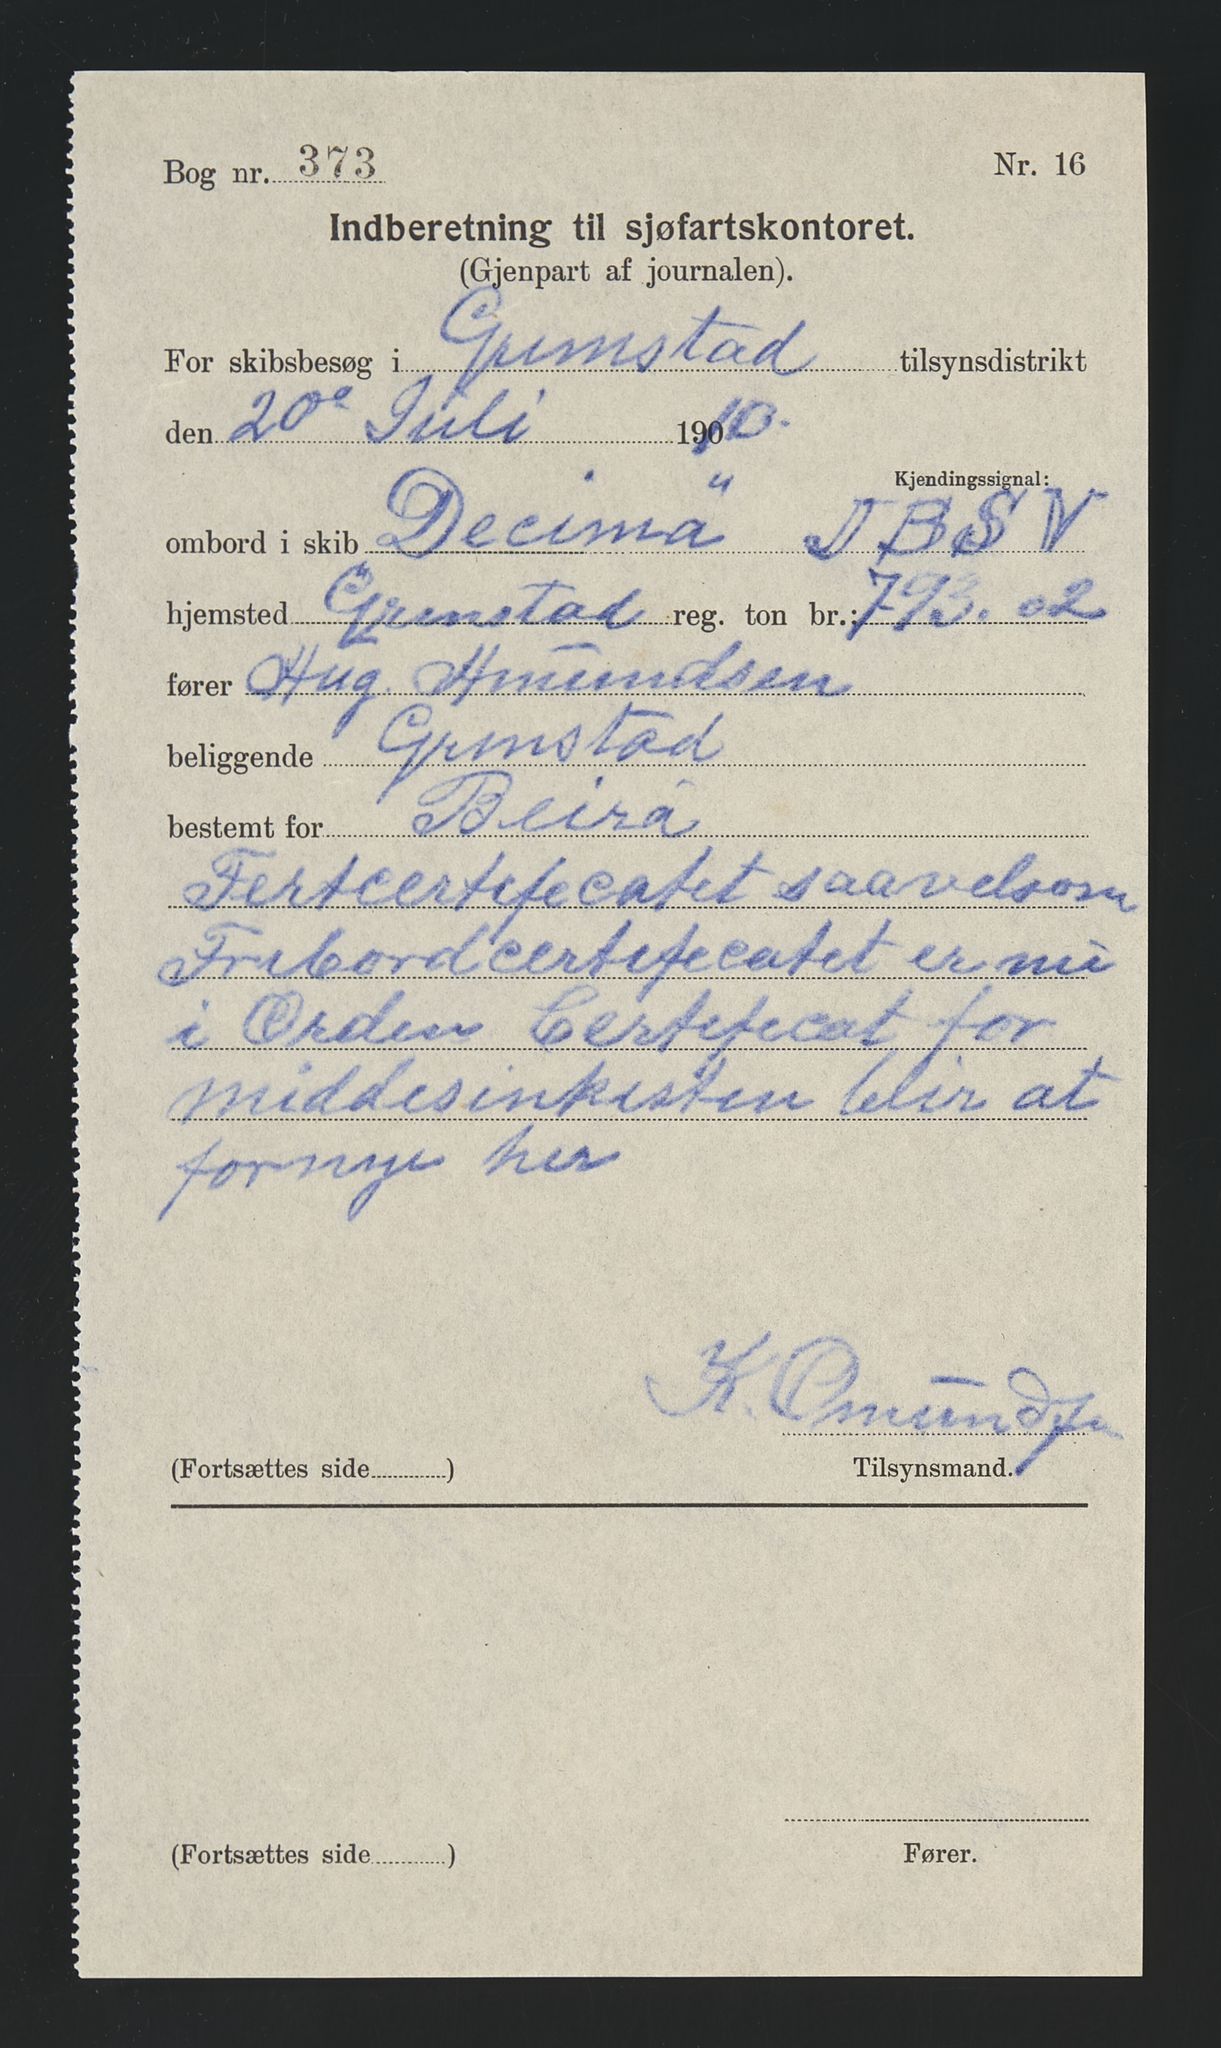 Bog nr. 373 Nr. 16
Indberetning til sjøfartskontoret.
(Gjenpart af journalen).
For skibsbesøg i Grimstad tilsynsdistrikt
den 20de Juli 1910.
Kjendingssignal:
ombord i skib Decima" J B S V
hjemsted Grimstad reg. ton br.: 793.02
fører Aug. Amundsen
beliggende Grmstad
bestemt for Beira
Fertcertificatet saavelsom
Fribordcertificatet er nu
i Orden Certificat for
middesinkisten blir at
fornye her
K. Omundsen
(Fortsættes side ) Tilsynsmand.
(Fortsættes side ) Fører.